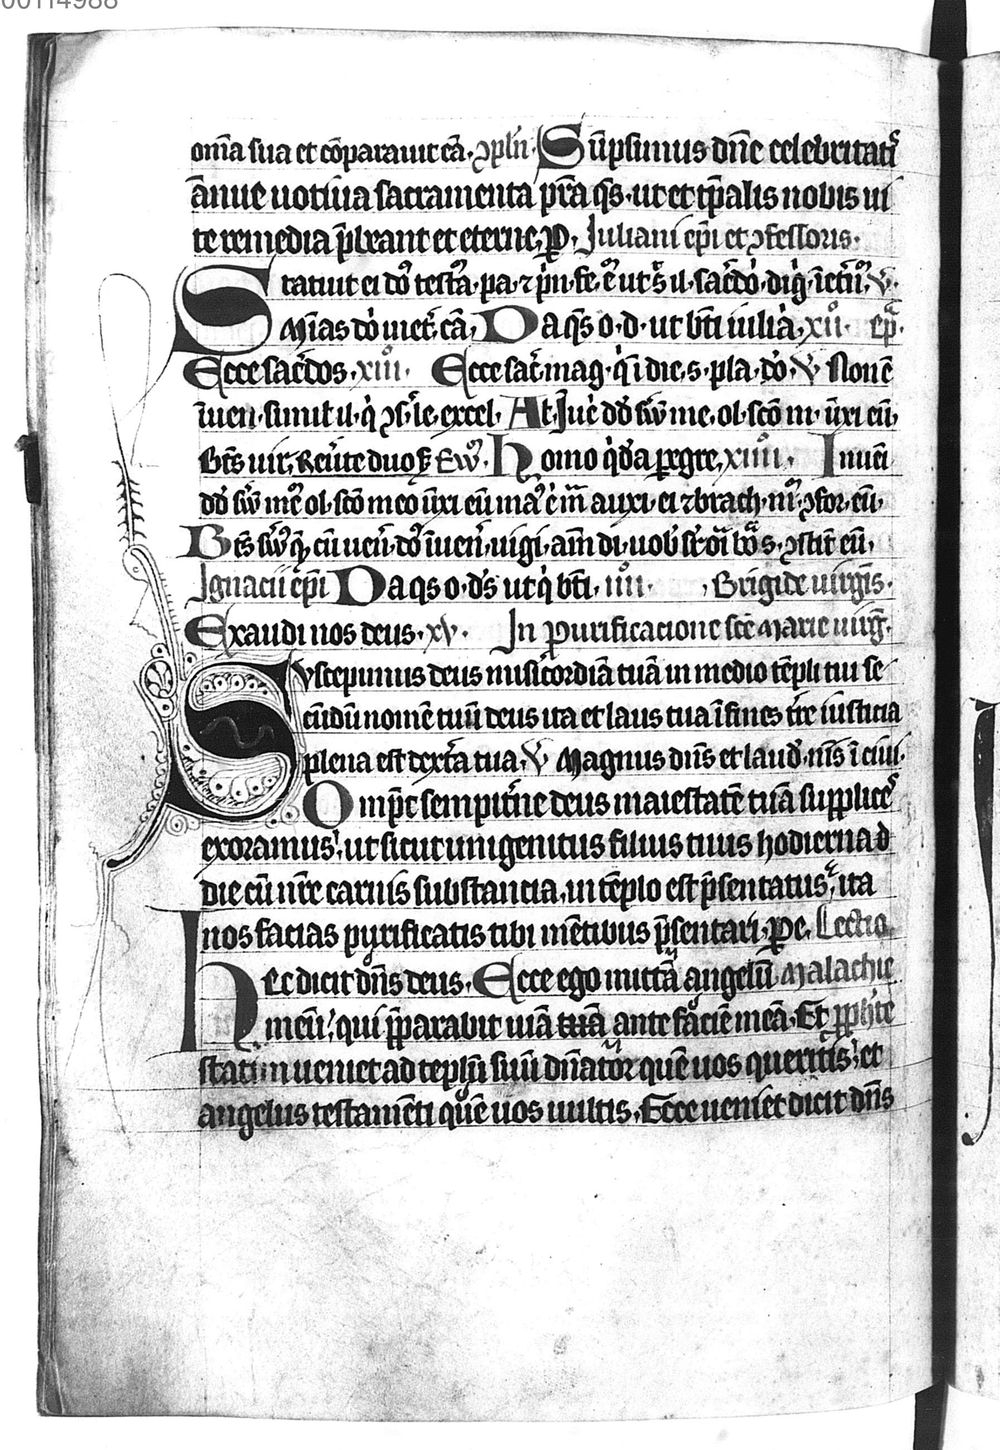 00114988
om̄a sua et cōparauit eā. ꝯpłn. Sūpsimus dn̄e celebritatꝭ
ānue uotiua sacramenta pr̄a q̄s. ut et tp̄alis nobis ui
te remedia p̄beant et eterne, ꝑ. Juliani ep̄i et ꝯfessoris.
Statuit ei do᷒ test᷒a. pa. ⁊ p̄n. fe.
M̄ias do᷒ in et̄. cā, Da q̄s o. d. ut bt̄i iulia᷒, xii. ep̄.
Ecce sac̄dos, xiii. Ecce sac̄. mag. q̇ ī die. s. pla. do᷒. V Non ē
īuen. simil il. q̇ ꝯs᷒. le. excel. At. Jue᷒ dd̄ ẜw̄ me. ol. sc̄o m. ūxi eū,
Bt̄s uir, Homo q̇da ꝑegre, xiiii. Inueī
dd̄ ẜw̄ me᷒ ol. sc̄o meo ūxi eū auxi. ei ⁊ brach. m᷒. ꝯfor. eū,
Bt̄s cū uen᷒. do᷒ īuen᷒. uigi. am̄ di. uob᷒ ꝯstit̄ eū,
Ignacii ep̄i Da q̄s o. ds̄ ut q̇ bt̄i. iiii. Brigide uirgīs.
Exaudi nos deus. xv. In purificacione sc̄e Marie uirḡ.
Suscepimus deus misīcordiā tuā in medio tēpli tui se
cūdū nomē tuū deus ita et laus tua ī fines tr̄e iusticia
plena est dext̄a tua, V Magnus dn̄s et laud᷒. nīs ī ciui.
Omp̄c sempit̄ne deus maiestatē tuā supplicꝭ
exoramus, ut sicut unigenitus filius tuus hodierna d
die cū nr̄e carnis substancia, in tēplo est p̄sentatus, ita
nos facias purificatis tibi mētibus p̄sentari, ꝑ e. Lectio
Hec dicit dn̄s deus, Ecce ego mittā angelū Malachie
meū, qui p̄parabit uiā tuā ante faciē meā. Et ꝓph̄te
statim ueniet ad teplū suū dn̄ator quē uos queritis, et
angelus testamēti quē uos uultis, Ecce ueniet dicit dn̄s